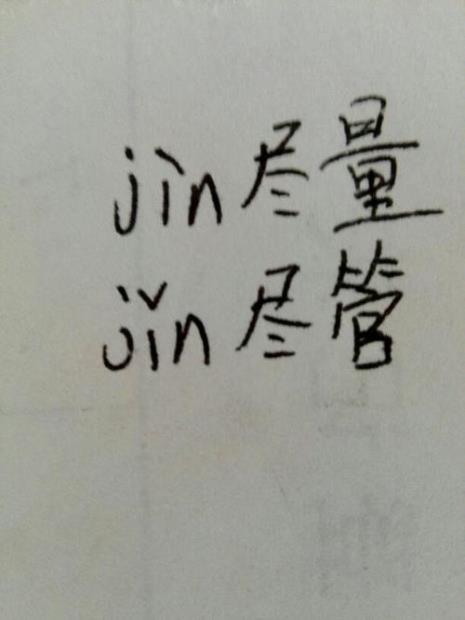 jìn尽量
jǐn尽管